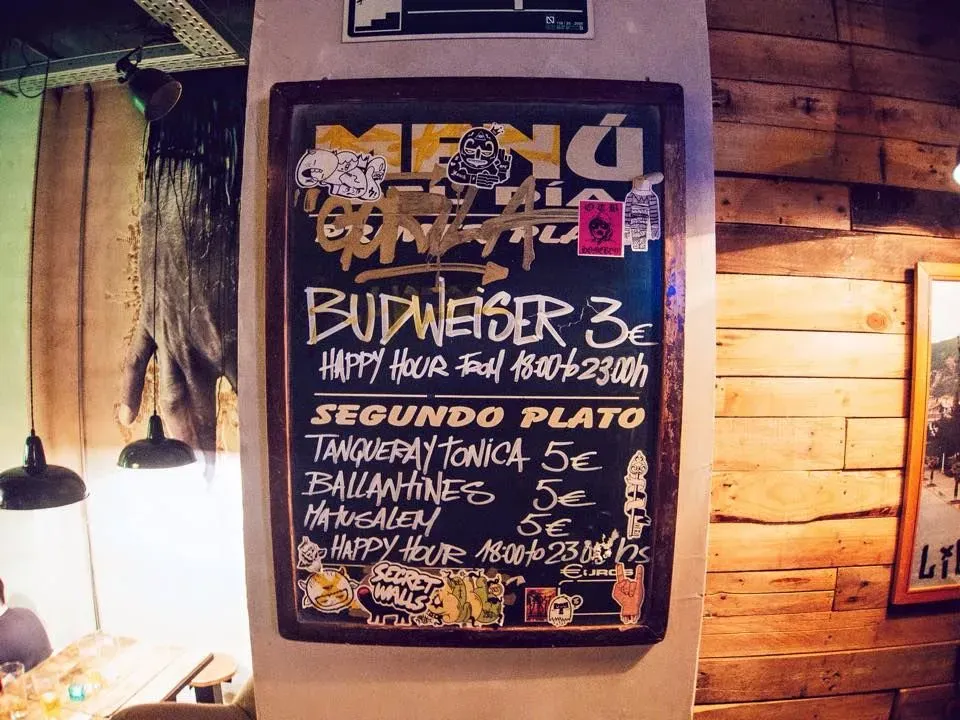 MENÚ
DEL DÍA
GORILA
PRIMER PLATO
BUDWEISER 3€
HAPPY HOUR FROM 18:00 to 23:00h
SEGUNDO PLATO
TANQUERAY TONICA 5€
BALLANTINES 5€
MATUSALEM 5€
HAPPY HOUR 18:00 to 23:00 hs
€UROS
SECRET
WALLS